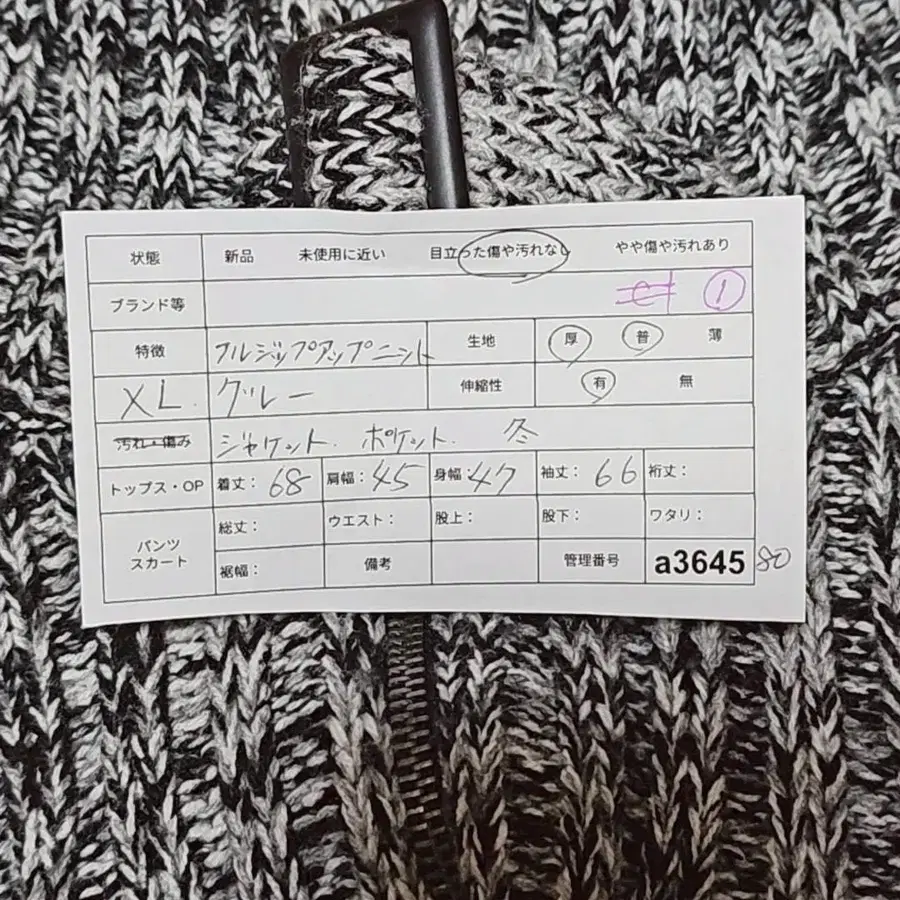 状態 新品 未使用に近い 目立った傷や汚れなし やや傷や汚れあり
ブランド等 ①
特徴 フルジップアップニット 生地 厚 普 薄
XL. グレー 伸縮性 有 無
汚れ・傷み ジャケット. ポケット. 冬
トップス・OP 着丈：68 肩幅：45 身幅：47 袖丈：66 裄丈：
パンツ スカート 総丈： ウエスト： 股上： 股下： ワタリ：
裾幅： 備考 管理番号 a3645 80